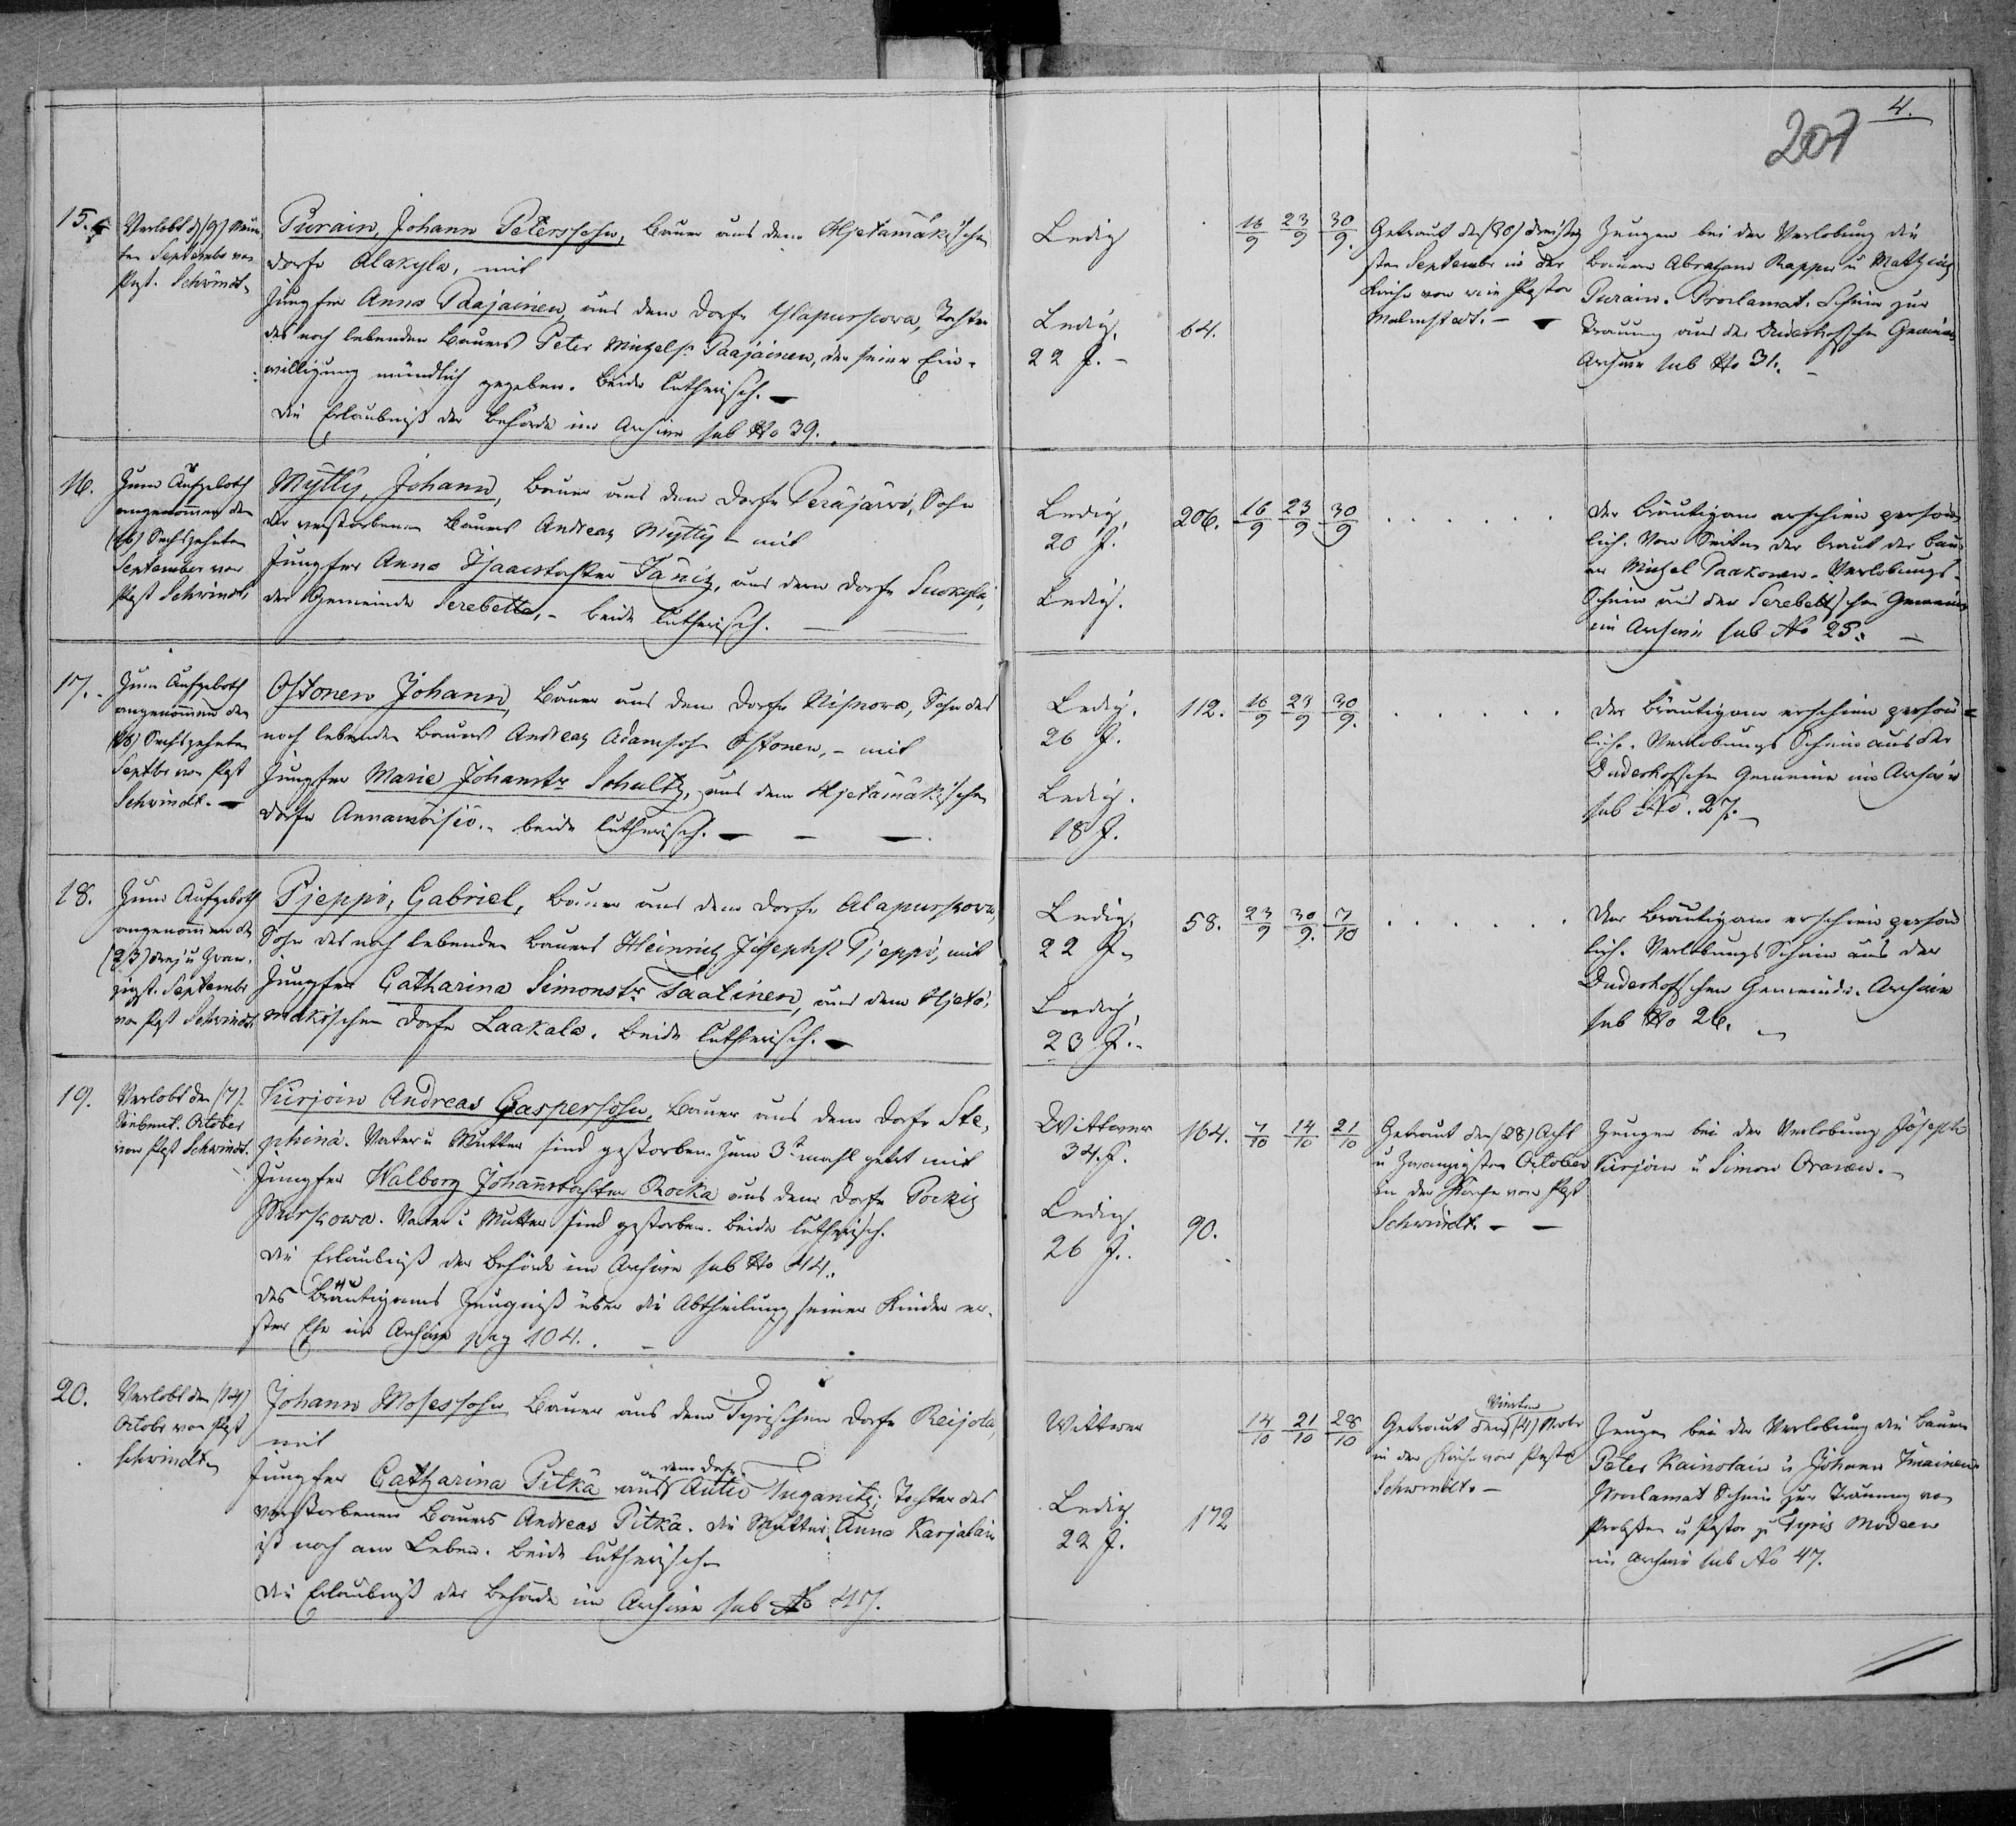 4.
207
15.
Verlobt d. (9) Neun-
ten September von
Past. Schwindt.
Purain, Johann Peterssohn, Bauer aus dem Hjetamäkischen
Dorfe Alakyla, mit
Jungfer Anna Paajainen, aus dem Dorfe Ylapurskowa, Tochter
des noch lebenden Bauers Peter Michels. Paajainen, der seine Ein-
willigung mündlich gegeben. Beide lutherisch. –
Die Erlaubniß der Behörde im Archive sub No 39.
Ledig
Ledig.
22 J. –
64.
16/9 23/9 30/9.
Getraut den (30) dreißig
sten September in der
Kirche von Pastor
Malmstedt. –
Zeugen bei der Verlobung die
Bauern Abraham Kappu u Matthias
Purain. Proclamat. Schein zur
Trauung aus der Duderhofschen Gemeine
Archive sub No 31.
16.
Zum Aufgeboth
angenommen den
(16) Sechszehnten
September von
Past Schwindt.
Mytty, Johann, Bauer aus dem Dorfe Peräjärwi, Sohn
des verstorbenen Bauers Andreas Mytty – mit
Jungfer Anna Isaacstochter Tänis, aus dem Dorfe Suokyla,
der Gemeinde Serebetta, – beide lutherisch. –
Ledig,
20 J.
Ledig.
206.
16/9 23/9 30/9
Der Bräutigam erschien persön-
lich. Von Seiten der Braut der Bau-
er Michel Paakonen. Verlobungs-
Schein aus der Serebettschen Gemeine
im Archive sub No 25. –
17.
Zum Aufgeboth
angenommen den
(16) Sechszehnten
Septbr von Past
Schwindt. –
Ostonen Johann, Bauer aus dem Dorfe Nisnowa, Sohn des
noch lebenden Bauers Andreas Adamsohn Ostonen, – mit
Jungfer Marie Johannstr Schultz, aus dem Hjetamäkischen
Dorfe Annamoisio. – beide lutherisch. –
Ledig.
26 J.
Ledig.
18 J.
112.
16/9 23/9 30/9.
Der Bräutigam erschien persön-
lich. Verlobungs Schein aus der
Duderhofschen Gemeine im Archive
sub No. 27. –
18.
Zum Aufgeboth
angenommen den
(23) drei u Zwan-
zigst. Septembr
von Past Schwindt.
Pjeppo, Gabriel, Bauer aus dem Dorfe Alapurskowa,
Sohn des noch lebenden Bauers Heinrich Josephs. Pjeppo, mit
Jungfer Catharina Simonstr Taalinen, aus dem Hjeta-
mäkischen Dorfe Laakala. Beide lutherisch. –
Ledig,
22 J.
Ledig,
23 J. –
58.
23/9 30/9. 7/10
Der Bräutigam erschien persön
lich. Verlobungs Schein aus der
Duderhofschen Gemeinde. Archive
sub No 26. –
19.
Verlobt den (7).
Siebent. October
von Past Schwindt.
Kurjoin Andreas Caspersohn, Bauer aus dem Dorfe Ste-
phina. Vater u Mutter sind gestorben. Zum 3t mahl getr mit
Jungfer Walborg Johannstochter Rocka aus dem Dorfe Pockis
Purskowa. Vater u Mutter sind gestorben. Beide lutherisch.
Die Erlaubniß der Behörde im Archive sub No 44.
Des Bräutigams Zeugniß über die Abtheilung seiner Kinder er-
ster Ehe im Archive pag 104. –
Wittwer
34. J.
Ledig.
26 J.
164.
90.
7/10 14/10 21/10
Getraut den (28) Acht
u Zwanzigsten October
in der Kirche von Past
Schwindt. – –
Zeugen bei der Verlobung Joseph
Kurjoin u Simon Oranen. –
20.
Verlobt den (14)
Octobr von Past
Schwindt.
Johann Mosessohn Bauer aus dem Tyrischen Dorfe Reijola,
mit
Jungfer Catharina Pitkä aus dem Dorfe Autio Juganitz, Tochter des
verstorbenen Bauers Andreas Pitkä. die Mutter, Anna Karjalain
ist noch am Leben. Beide lutherisch
Die Erlaubniß der Behörde im Archive sub No 45.
Wittwer
Ledig
22 J.
172
14/10 21/10 28/10
Getraut den Vierten (4) Novbr
in der Kirche von Pastor
Schwindt. –
Zeugen bei der Verlobung die Bauern
Peter Kainolain u Johann Imainen.
Proclamat Schein zur Trauung von
Probsten u Pastor zu Tyris Modeen
im Archive sub No 47.